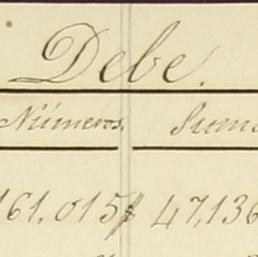 Debe.
Números. Suma
161.015$ 47.136